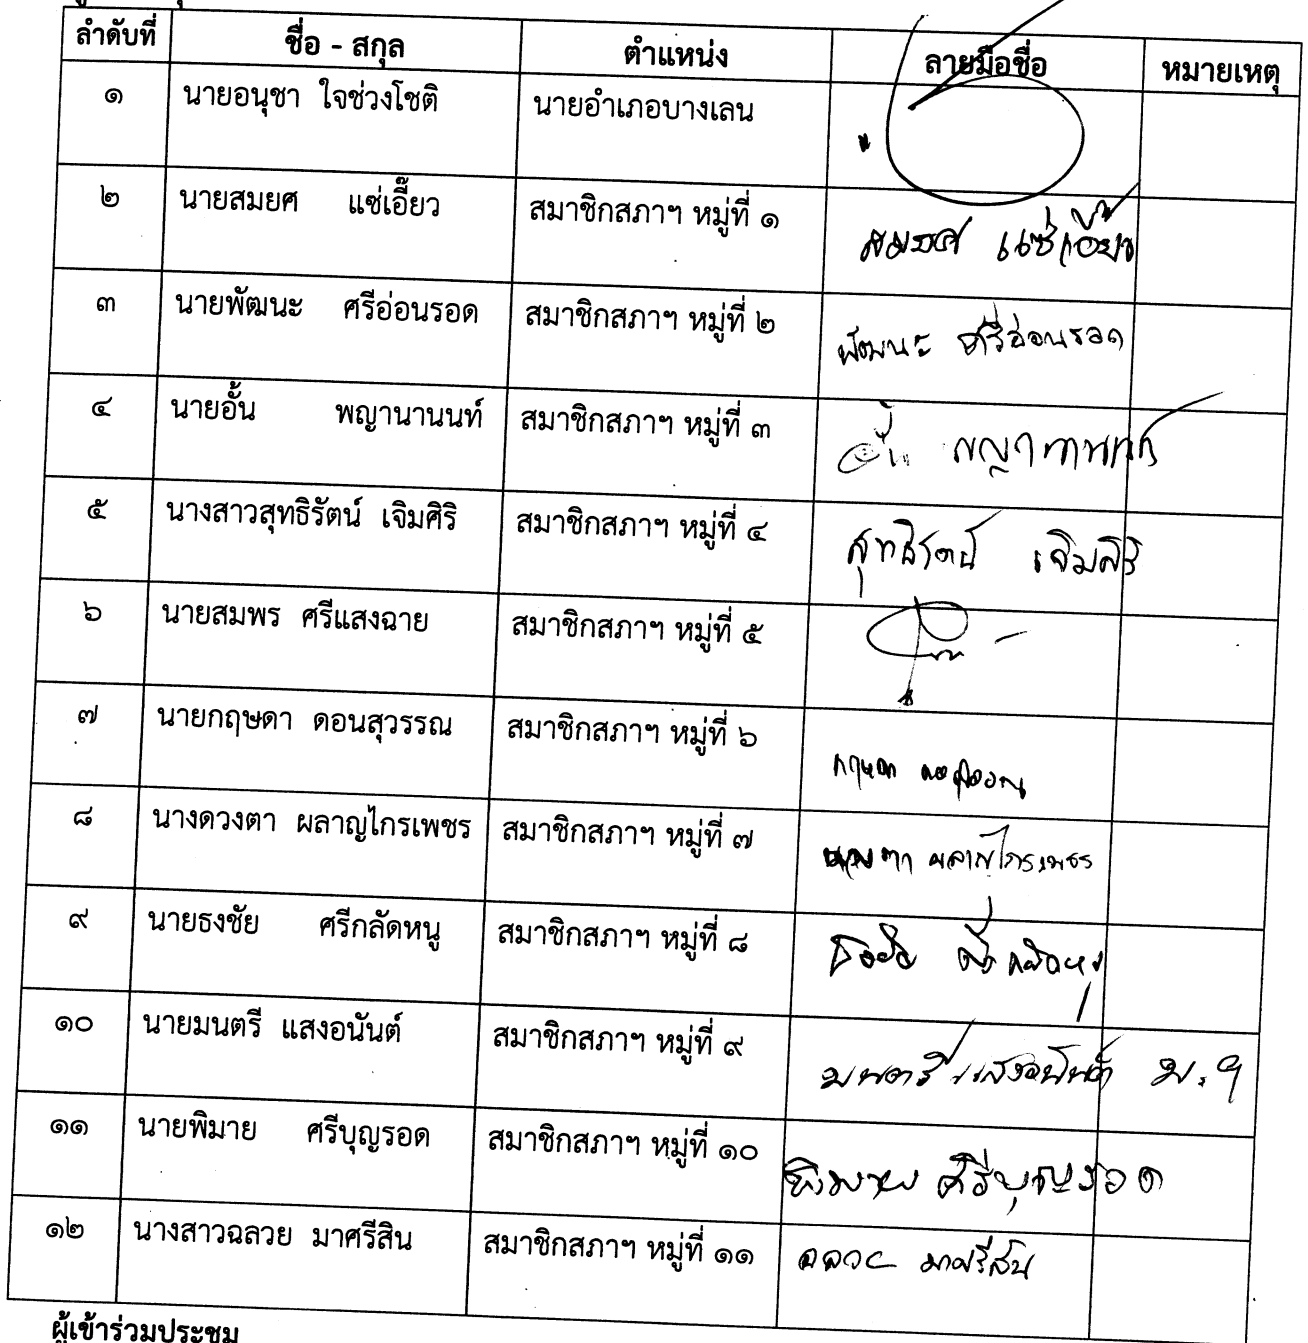 ลำดับที่ ชื่อ - สกุล ตำแหน่ง ลายมือชื่อ หมายเหตุ
๑ นายอนุชา ใจช่วงโชติ นายอำเภอบางเลน
๒ นายสมยศ แซ่เอี๊ยว สมาชิกสภาฯ หมู่ที่ ๑ สมยศ แซ่เอี๊ยว
๓ นายพัฒนะ ศรีอ่อนรอด สมาชิกสภาฯ หมู่ที่ ๒ พัฒนะ ศรีอ่อนรอด
๔ นายอั้น พญานานนท์ สมาชิกสภาฯ หมู่ที่ ๓ อั้น พญานานนท์
๕ นางสาวสุทธิรัตน์ เจิมศิริ สมาชิกสภาฯ หมู่ที่ ๔ สุทธิรัตน์ เจิมศิริ
๖ นายสมพร ศรีแสงฉาย สมาชิกสภาฯ หมู่ที่ ๕
๗ นายกฤษดา ดอนสุวรรณ สมาชิกสภาฯ หมู่ที่ ๖ กฤษดา ดอนสุวรรณ
๘ นางดวงตา ผลาญไกรเพชร สมาชิกสภาฯ หมู่ที่ ๗ ดวงตา ผลาญไกรเพชร
๙ นายธงชัย ศรีกลัดหนู สมาชิกสภาฯ หมู่ที่ ๘ ธงชัย ศรีกลัดหนู
๑๐ นายมนตรี แสงอนันต์ สมาชิกสภาฯ หมู่ที่ ๙ มนตรี แสงอนันต์ ม.๙
๑๑ นายพิมาย ศรีบุญรอด สมาชิกสภาฯ หมู่ที่ ๑๐ พิมาย ศรีบุญรอด
๑๒ นางสาวฉลวย มาศรีสิน สมาชิกสภาฯ หมู่ที่ ๑๑ ฉลวย มาศรีสิน
ผู้เข้าร่วมประชุม